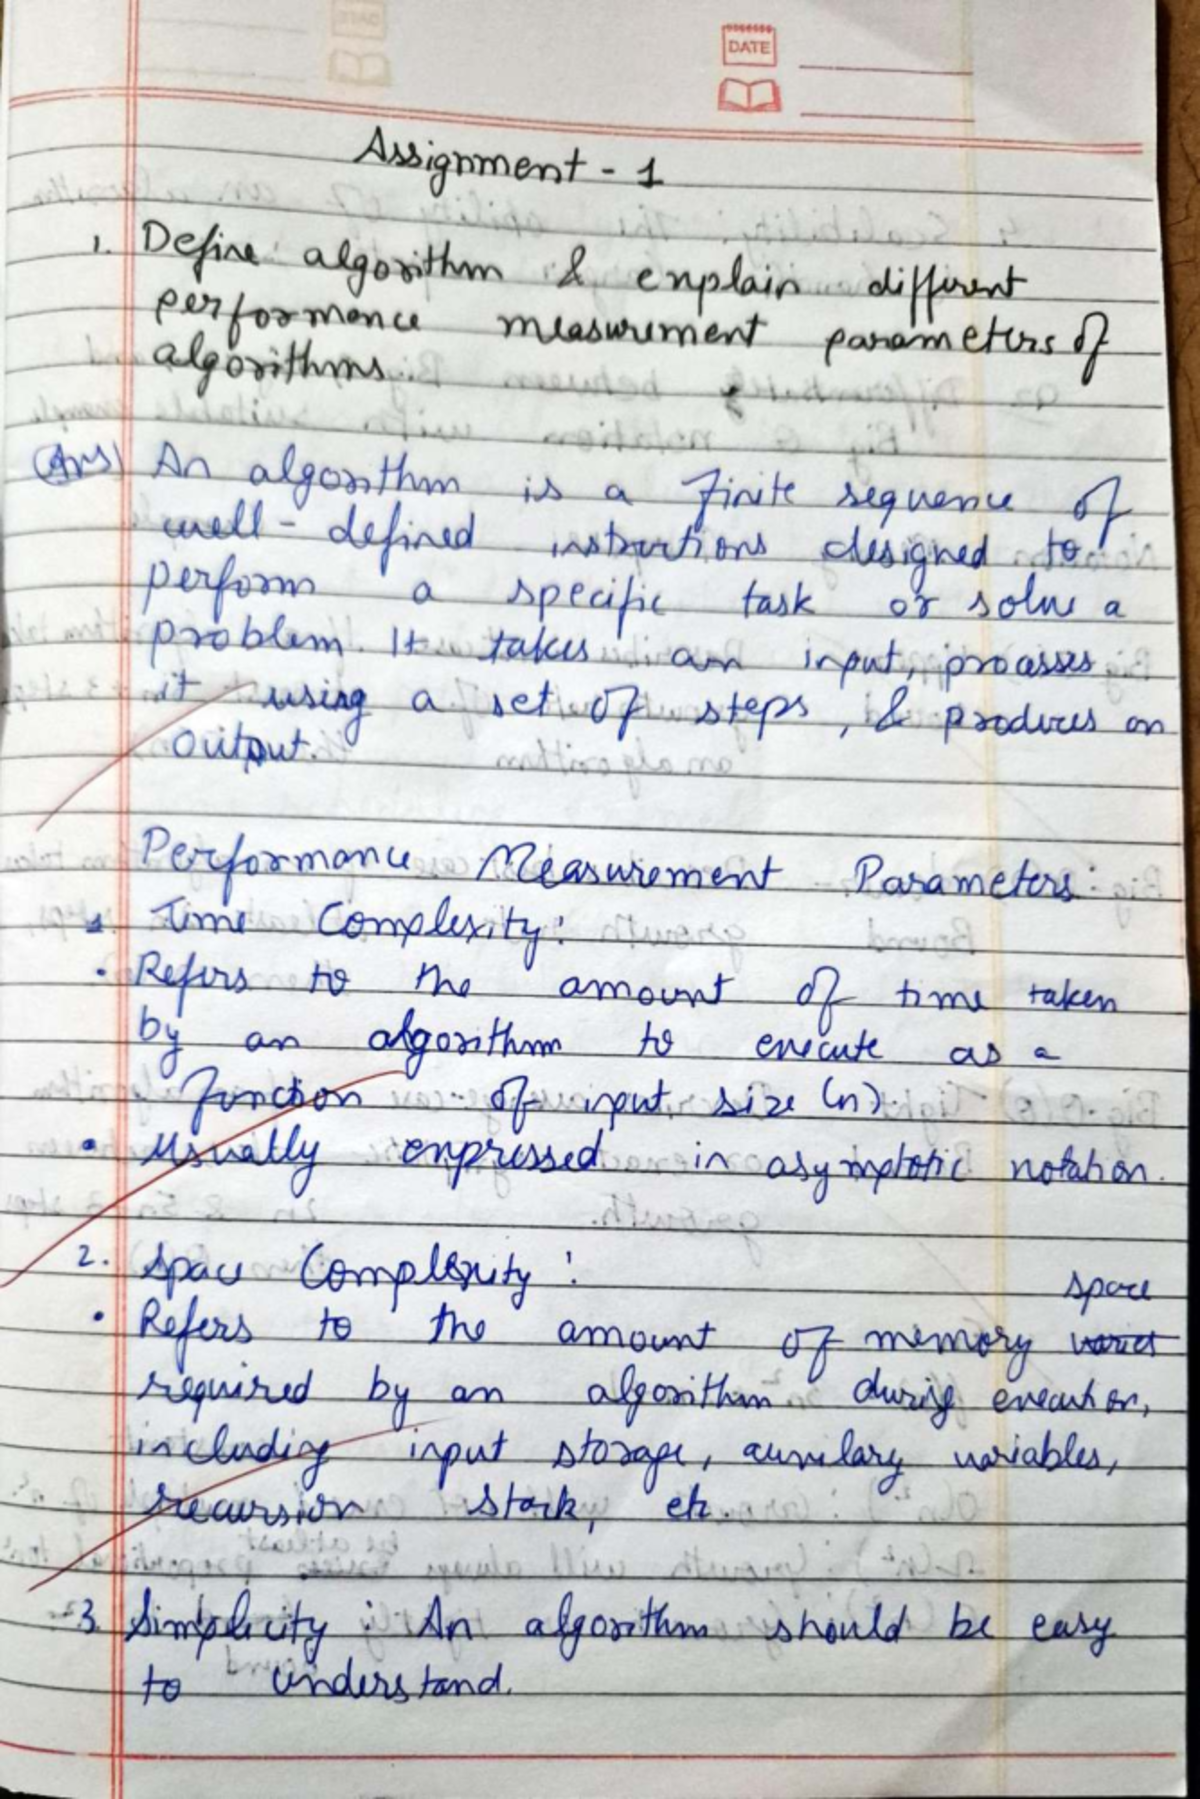 DATE
Assignment - 1
1. Define algorithm & explain different
performance measurement parameters of
algorithms.
Ans) An algorithm is a finite sequence of
well-defined instructions designed to
perform a specific task or solve a
problem. It takes an input, processes
it using a set of steps, & produces an
output.
Performance Measurement Parameters:
1. Time Complexity:
• Refers to the amount of time taken
by an algorithm to execute as a
function of input size (n).
• Usually expressed in asymptotic notation.
2. Space Complexity:
space
• Refers to the amount of memory
required by an algorithm during execution,
including input storage, auxilary variables,
recursion stack, etc.
3. Simplicity: An algorithm should be easy
to understand.